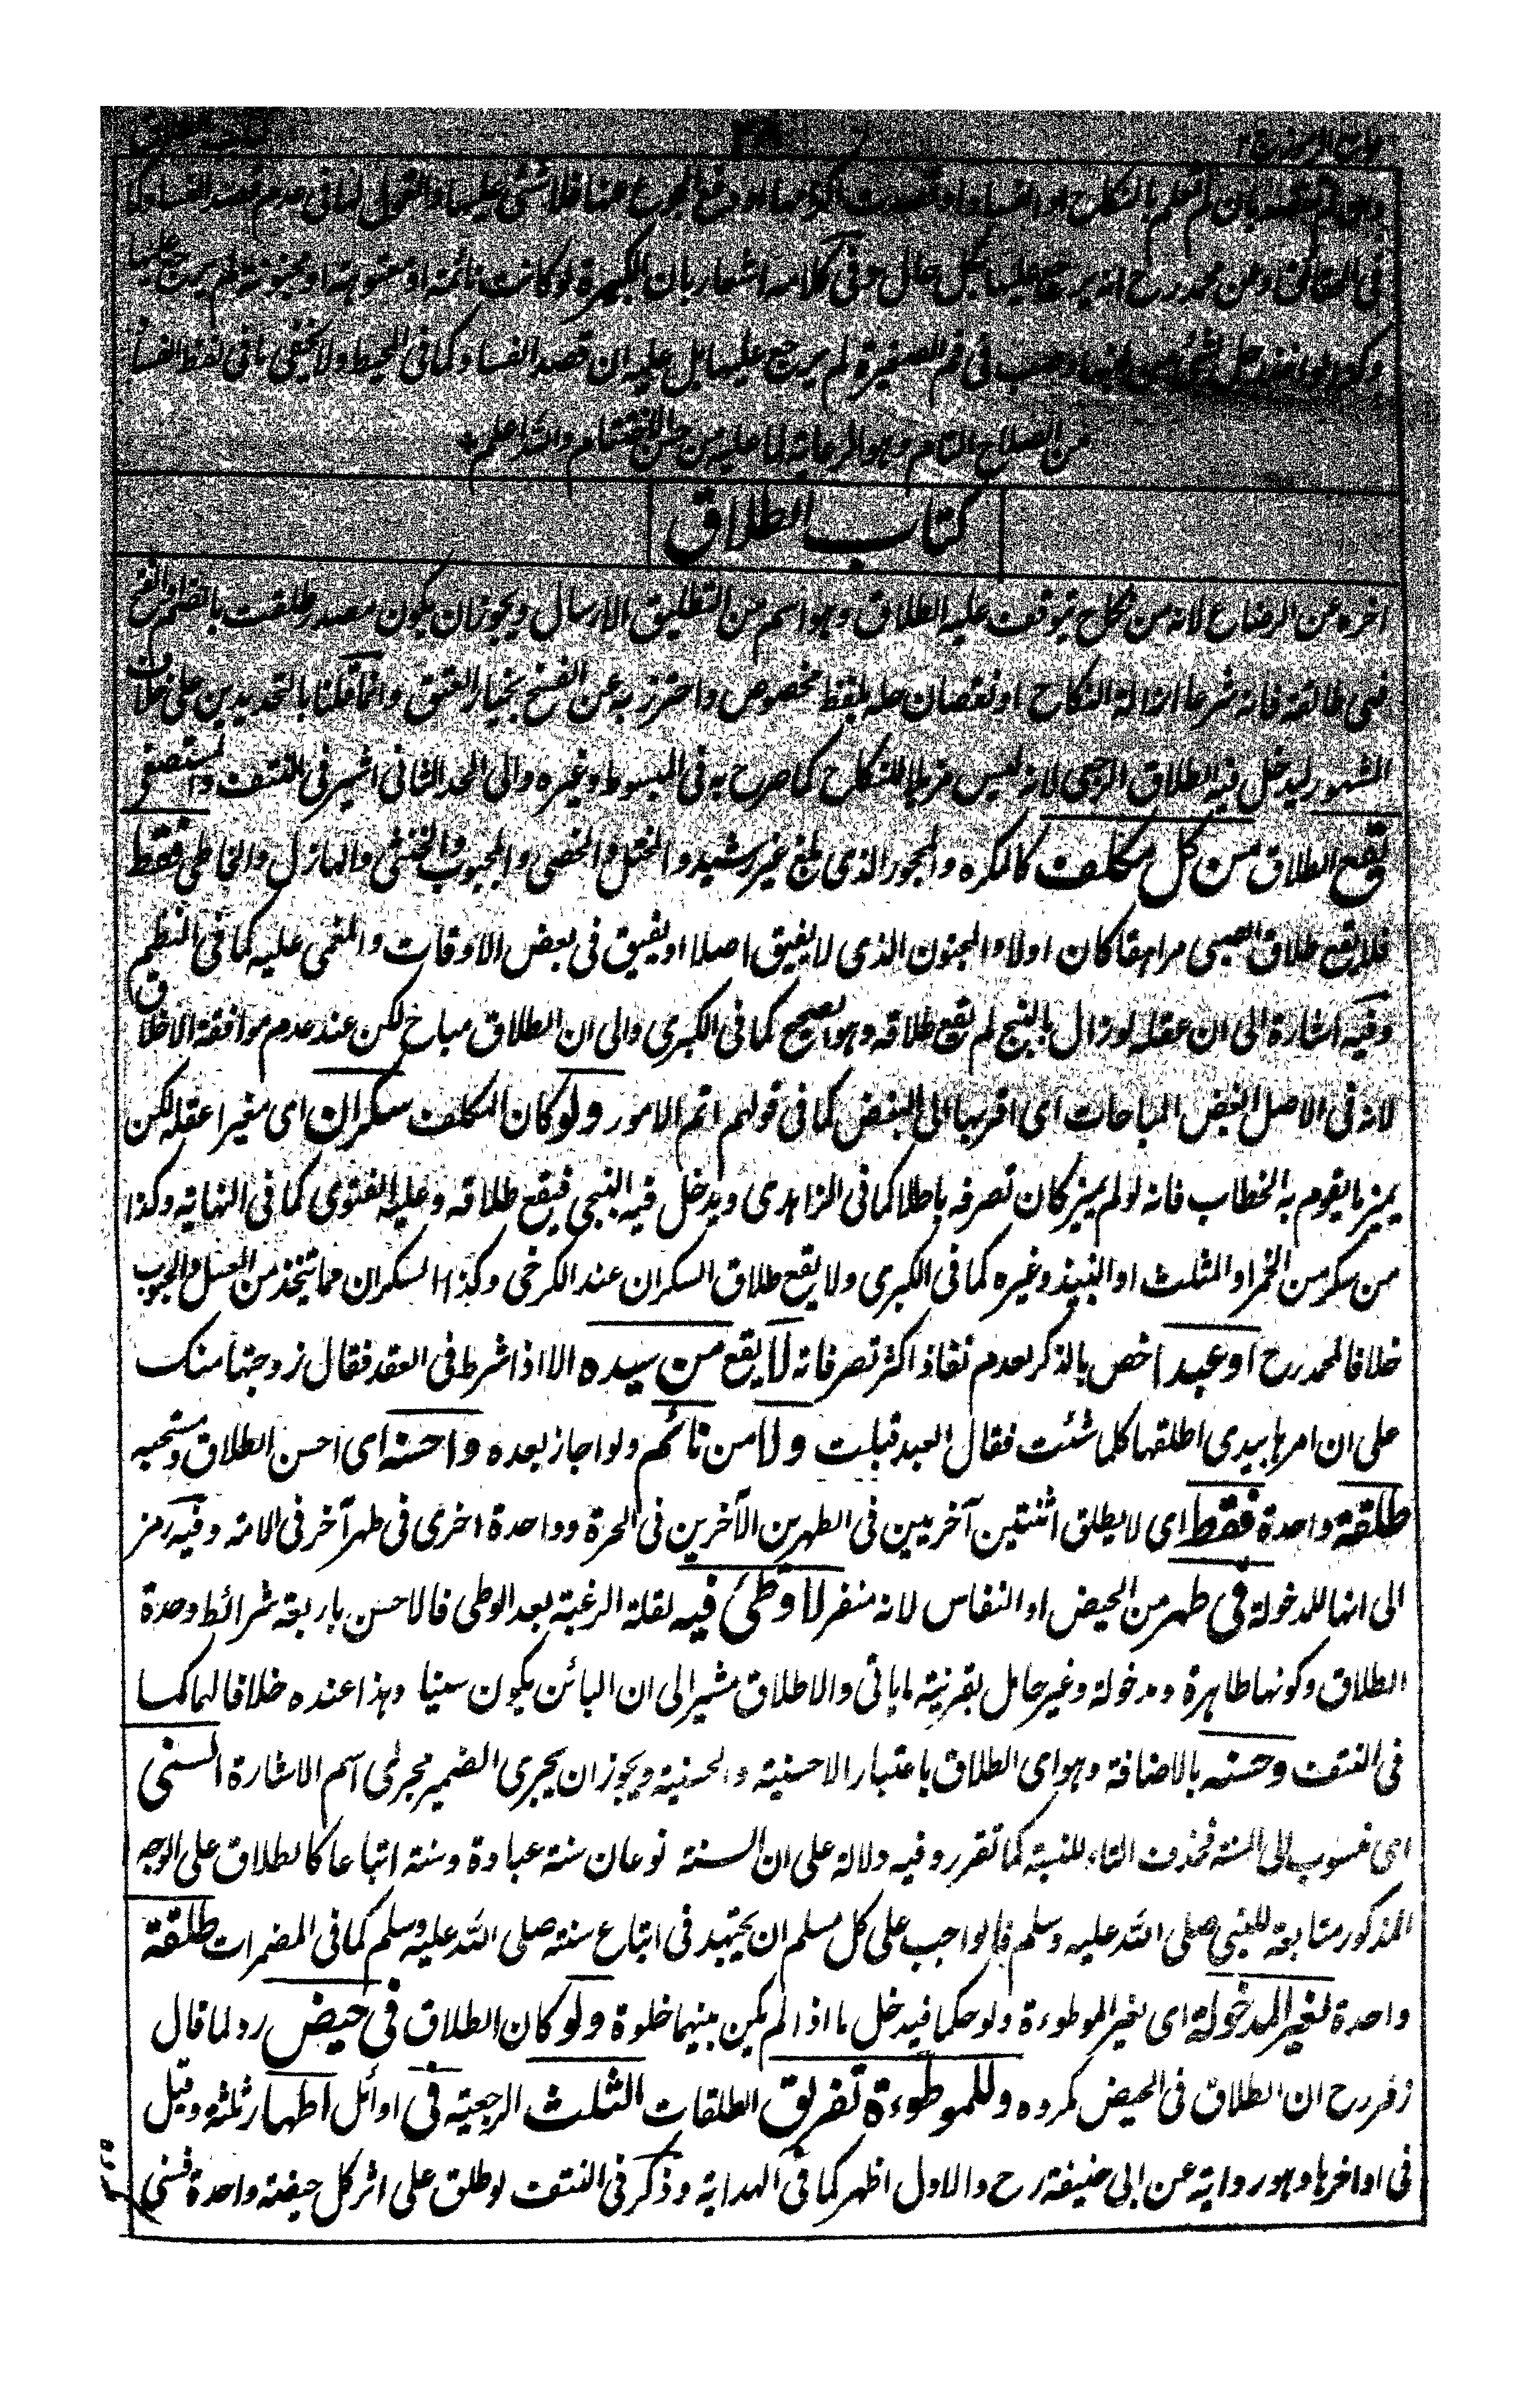 وان لم تقصد بان لم تعلم بالنكاح او الفساد او قصدت دفع الجوع فلا شئ عليها والقول لها في عدم قصد الفساد كما
في او عن محمد رح انه يرجع عليها بكل حال وفي كلامه اشعار بان الكبيرة لو كانت نائمة او معتوهة او مجنونة لم يرجع عليها
وكذا لو اخذ رجل لبنها وصب في فم الصغيرة لم يرجع عليها بل عليه ان قصد الفساد كما في المحيط ولا يخفى ما في لفظ الفساد
من الصلاح التام وهو الرعاية لما عليه من حسن الاختتام والله اعلم
كتاب الطلاق
اخره عن الرضاع لانه من نكاح يتوقف عليه الطلاق وهو اسم من التطليق الارسال ويجوز ان يكون مصدر طلقت بالضم او الفتح
فهي طالقة فانه شرعا ازالة النكاح او نقصان حله بلفظ مخصوص واحترز به عن الفسخ بخيار العتق وانما قلنا بالتحديدين على خلاف
المشهور ليدخل فيه الطلاق الرجعي لانه ليس مزيلا للنكاح كما صرح به في المبسوط وغيره والى الحد الثاني اشير في النتف والمستصفى
يقع الطلاق من كل مكلف كالمكره والمحجور الذي بلغ غير رشيد والخصي والمجبوب والخنثى والهازل والخاطي فقط
فلا يقع طلاق الصبي مراهقا كان اولا والمجنون الذي لا يفيق اصلا او يفيق في بعض الاوقات والمغمى عليه كما في النظم
وفيه اشارة الى ان عقله لو زال بالبنج لم تقع طلاقه وهو الصحيح كما في الكبرى والى ان الطلاق مباح لكن عند عدم موافقة الاخلاق
لانه في الاصل ابغض المباحات اى اقربها الى البغض كما في قولهم اتم الامور ولو كان المكلف سكران اى مغيرا عقله لكن
يميز ما يقوم به الخطاب فانه لو لم يميز كان تصرفه باطلا كما في الزاهدى ويدخل فيه البنجي فيقع طلاقه وعليه الفتوى كما في النهاية وكذا
من سكر من الخمر او المثلث او النبيذ وغيره كما في الكبرى ولا يقع طلاق السكران عند الكرخي وكذا السكران مما يتخذ من العسل والحبوب
خلافا لمحمد رح او عبدا خص بالذكر لعدم نفاذ اكثر تصرفاته لا يقع من سيده الا اذا شرط في العقد فقال زوجتها منك
على ان امرها بيدى اطلقها كلما شئت فقال العبد قبلت ولا من نائم ولو اجاز بعده واحسنه اى احسن الطلاق ومستحبه
طلقة واحدة فقط اى لا يطلق اثنتين آخريين في الطهرين الآخرين في الحرة وواحدة اخرى في طهر آخر في الامة وفيه رمز
الى انها للمدخولة في طهر من الحيض او النفاس لانه منفر لا وطئ فيه لقلة الرغبة بعد الوطى فالاحسن باربعة شرائط وحدة
الطلاق وكونها طاهرة ومدخولة وغير حامل بقرينة ما ياتي والاطلاق مشير الى ان البائن يكون سنيا وهذا عنده خلافا لهما كما
في النتف وحسنه بالاضافة وهو اى الطلاق باعتبار الاحسنية والحسنية ويجوز ان يجرى الضمير مجرى اسم الاشارة السنى
اى منسوب الى السنة فحذف التاء للنسبة كما تقرر وفيه دلالة على ان السنة نوعان سنة عبادة وسنة اتباعا كالطلاق على الوجه
المذكور متابعة للنبى صلى الله عليه وسلم فالواجب على كل مسلم ان يجتهد في اتباع سنته صلى الله عليه وسلم كما في المضمرات طلقة
واحدة لغير المدخولة اى لغير الموطوءة ولو حكما فيدخل ما اذا لم يكن بينهما خلوة ولو كان الطلاق في حيض رد لما قال
زفر رح ان الطلاق في الحيض مكروه وللموطوءة تفريق الطلقات الثلث الرجعية في اوائل اطهار ثلثة وقيل
في اواخرها وهو رواية عن ابي حنيفة رح والاول اظهر كما في الهداية وذكر في النتف لو طلق على اثر كل حيضة واحدة فسنى